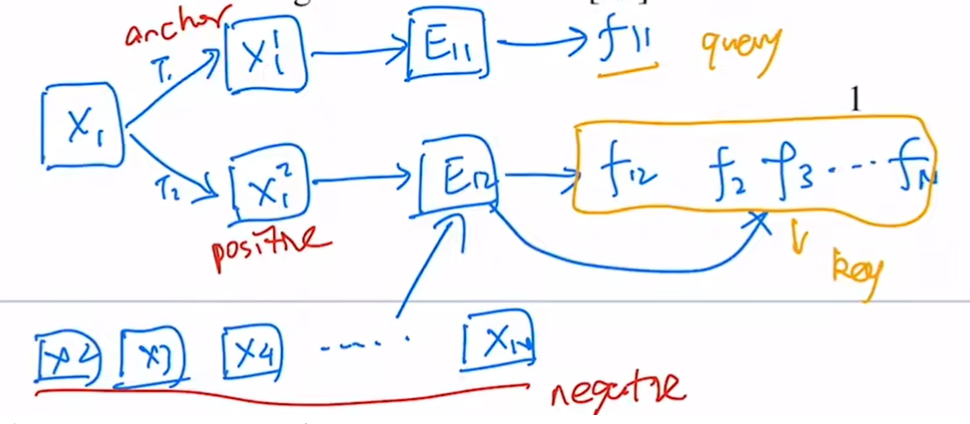 anchor
T₁ X₁¹ E₁₁ f₁₁ query
1
X₁
T₂ X₁² E₁₂ f₁₂ f₂ f₃ ... fₙ
positive
key
X₂ X₃ X₄ ..... Xₙ
negative